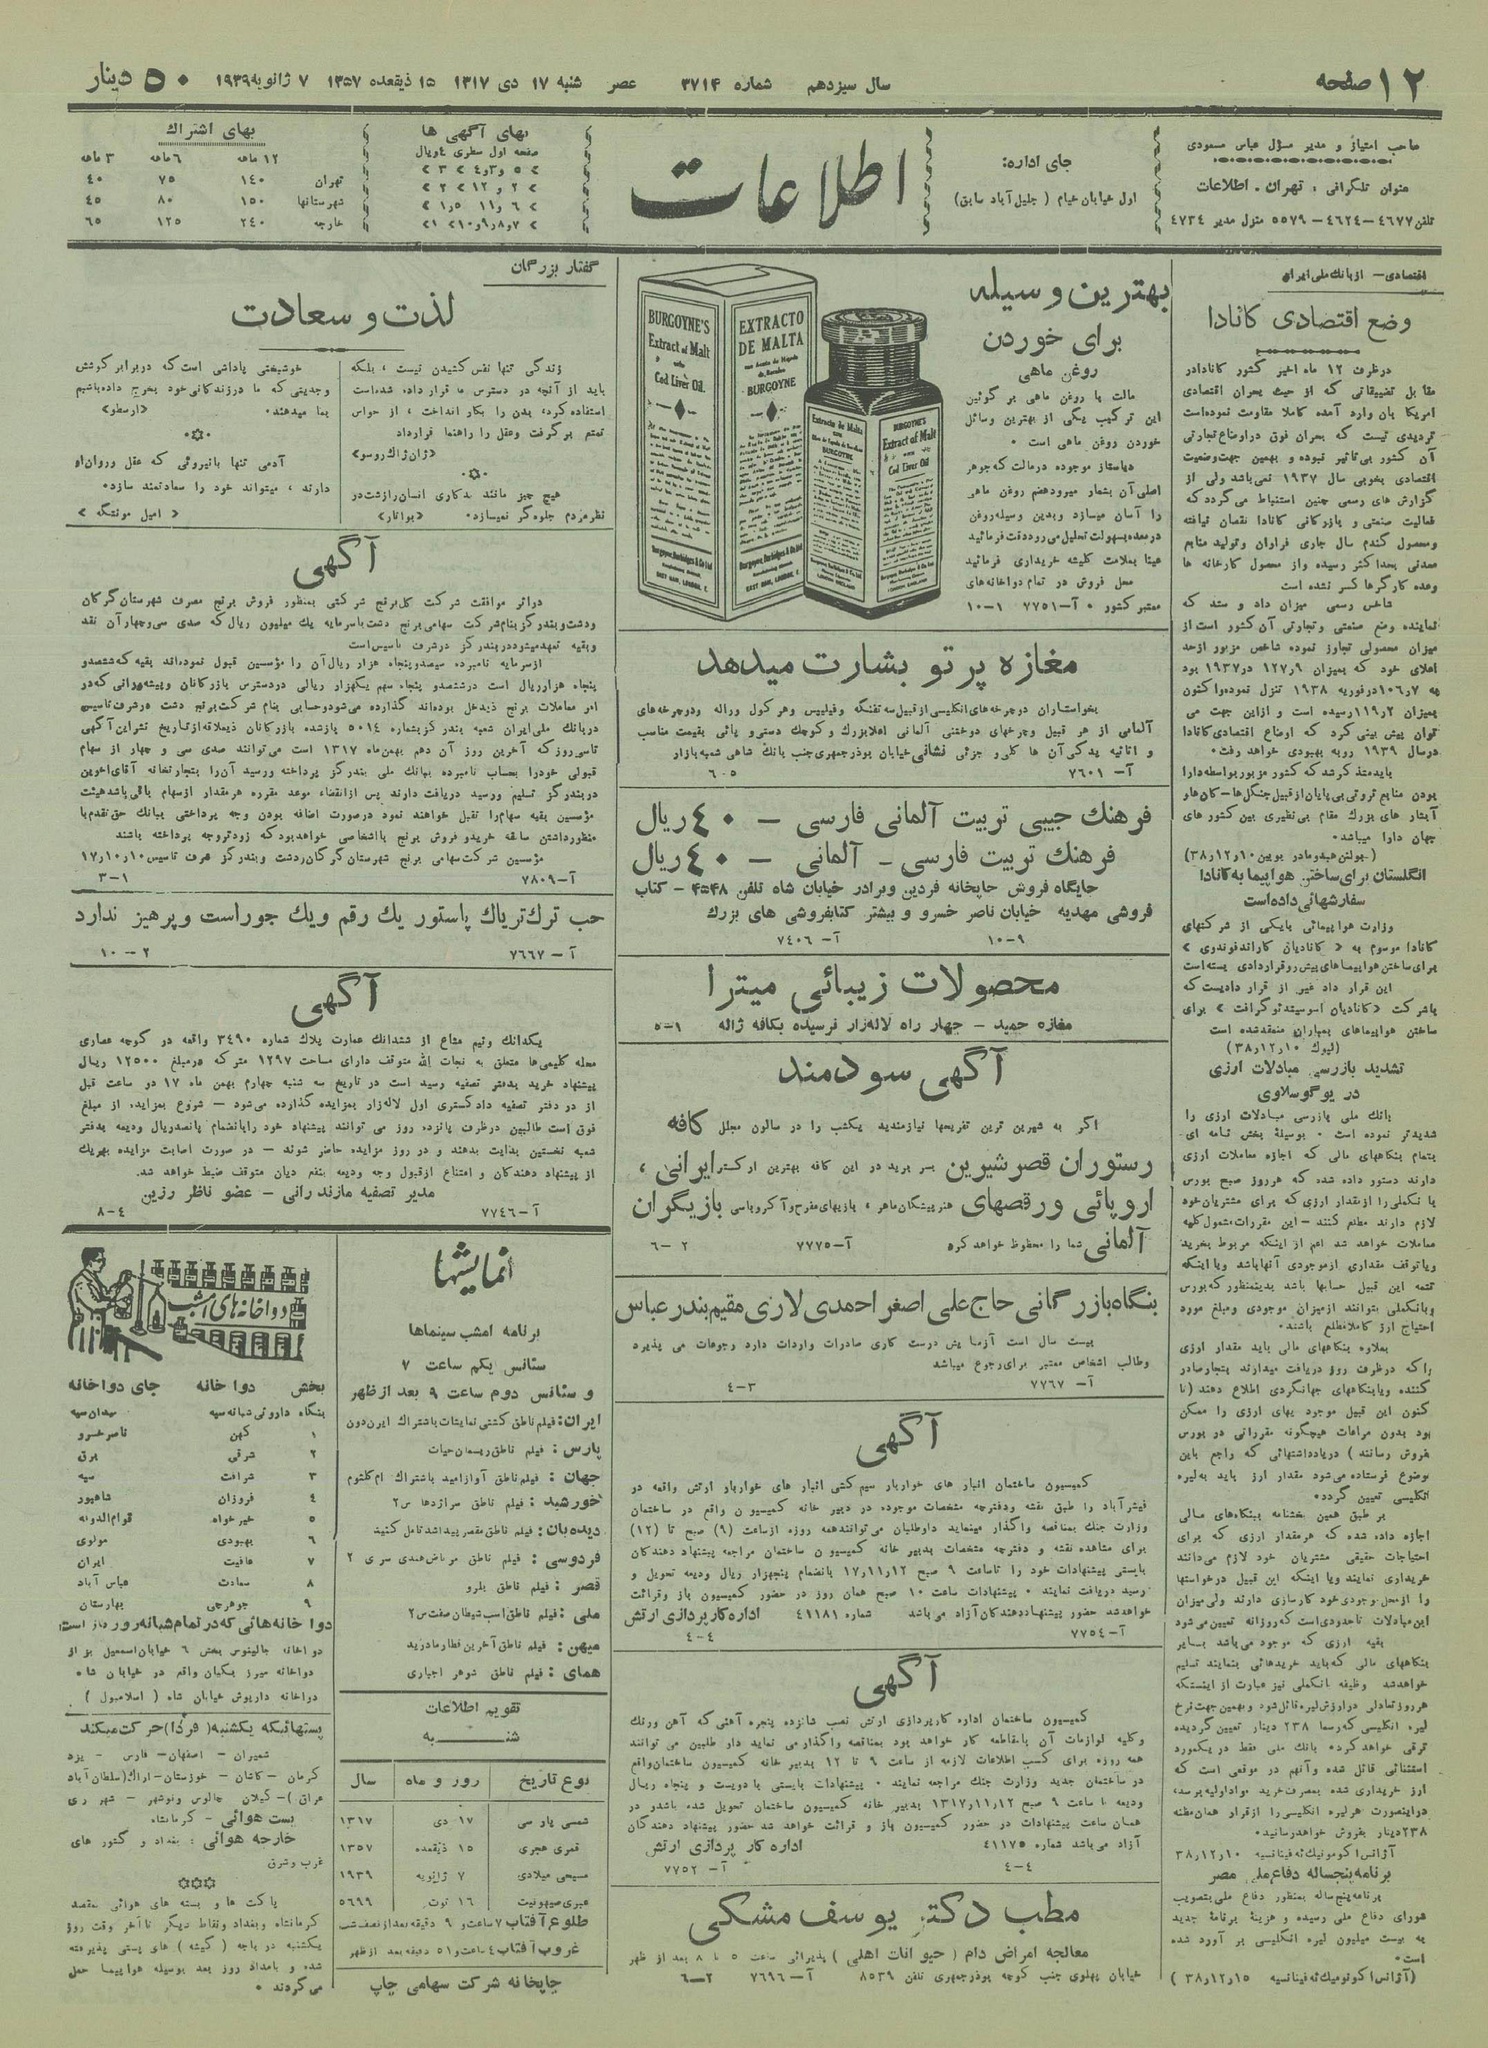 ۱۲ صفحه
سال سیزدهم شماره ۳۷۱۴ عصر شنبه ۱۷ دی ۱۳۱۷ ۱۵ ذیقعده ۱۳۵۷ ۷ ژانویه ۱۹۳۹
۵۰ دینار
صاحب امتیاز و مدیر مسؤل عباس مسعودی
عنوان تلگرافی : تهران . اطلاعات
تلفن ۴۶۷۷–۴۶۲۴– ۵۵۷۹ منزل مدیر ۴۷۳۴
جای اداره:
اول خیابان خیام ( جلیل آباد سابق)
اطلاعات
بهای آگهی ها
صفحه اول سطری ۴ ریال
بهای اشتراك
۱۲ ماهه ۶ ماهه ۳ ماهه
تهران ۱۴۰ ۷۵ ۴۰
شهرستانها ۱۵۰ ۸۰ ۴۵
خارجه ۲۴۰ ۱۲۵ ۶۵
اقتصادی– از بانك ملی ایران
وضع اقتصادی کانادا
درظرف ۱۲ ماه اخیر کشور کانادادر
مقابل تضییقاتی که از حیث بحران اقتصادی
امریکا بان وارد آمده کاملا مقاومت نموده‌است
تردیدی نیست که بحران فوق دراوضاع تجارتی
آن کشور بی‌تاثیر نبوده و بهمین جهت وضعیت
اقتصادی بخوبی سال ۱۹۳۷ نمی‌باشد ولی از
گزارش های رسمی چنین استنباط می‌گردد که
فعالیت صنعتی و بازرگانی کانادا نقصان نیافته
ومحصول گندم سال جاری فراوان وتولید منابع
معدنی بحداکثر رسیده واز محصول کارخانه ها
وعده کارگرها کسر نشده است
شاخص رسمی میزان داد و ستد که
نماینده وضع صنعتی و تجارتی آن کشور است از
میزان معمولی تجاوز نموده شاخص مزبور ازحد
اعلای خود که بمیزان ۱۲۷٫۹ در ۱۹۳۷ بود
به ۱۰۶٫۷ درفوریه ۱۹۳۸ تنزل نموده‌و اکنون
بمیزان ۱۱۹٫۲ رسیده است و ازاین جهت می
توان پیش بینی کرد که اوضاع اقتصادی کانادا
درسال ۱۹۳۹ روبه بهبودی خواهد رفت.
بایدمتذکرشد که کشور مزبور بواسطه دارا
بودن منابع ثروتی بی‌پایان از قبیل جنگل‌ها–کان‌ها و
آبشار های بزرگ مقام بی‌نظیری بین کشور های
جهان دارا میباشد.
انگلستان برای ساختن هواپیما به کانادا
سفارشهائی داده است
وزارت هواپیمائی بایکی از شرکتهای
کانادا موسوم به « کانادیان کاراندفوندری »
برای ساختن هواپیماهای پیش رو قراردادی بسته است
این قرار داد غیر از قرار دادیست که
باشرکت «کانادیان اسوسیتدئوگرافت » برای
ساختن هواپیماهای بمباران منعقد شده است
تشدید بازرسی مبادلات ارزی
در یوگوسلاوی
بانك ملی بازرسی مبادلات ارزی را
شدیدتر نموده است . بوسیلهٔ بخش نامه ای
بتمام بنگاههای مالی که اجازه معاملات ارزی
دارند دستور داده شده که هرروز صبح بورس
یا بانك ملی را از مقدار ارزی که برای مشتریان خود
لازم دارند مطلع کنند – این مقررات مشمول کلیه
معاملات خواهد شد اعم از اینکه مربوط بخرید
ویاتوقف مقداری ازموجودی آنها باشد ویا اینکه
تتمه این قبیل حسابها باشد بدینمنظور که بورس
وبانك‌ملی بتوانند ازمیزان موجودی ومبلغ مورد
احتیاج ارز کاملا مطلع باشند.
بعلاوه بنگاههای مالی باید مقدار ارزی
را که درظرف روز دریافت میدارند بتجار صادر
کننده ویابنگاههای جهانگردی اطلاع دهند (تا
کنون این قبیل موجود بهای ارزی را ممکن
بود بدون مراعات هیچگونه مقرراتی در بورس
بفروش رسانند ) دریادداشتهائی که راجع باین
موضوع فرستاده می‌شود مقدار ارز باید به‌لیره
انگلیسی تعیین گردد.
بر طبق همین بخشنامه ببنگاه‌های مالی
اجازه داده شده که هرمقدار ارزی که برای
احتیاجات حقیقی مشتریان خود لازم می‌دانند
خریداری نمایند ویا اینکه این قبیل درخواستها
را ازمحل موجودی خود کارسازی دارند ولی میزان
این مبادلات تاحدودی است که روزانه تعیین می‌شود
بقیه ارزی که موجود می‌باشد بسایر
بنگاههای مالی که باید خریدهائی بنمایند تسلیم
خواهد شد وظیفه بانك‌ملی نیز عبارت از اینستکه
هرروز تعادلی درارزش لیره قائل شود و بهمین جهت نرخ
لیره انگلیسی که رسما ۲۳۸ دینار تعیین گردیده
ترقی خواهد کرد. بانك ملی فقط دریکمورد
استثنائی قائل شده وآنهم در موقعی است که
ارز خریداری شده بمصرف خرید مواد اولیه برسد،
دراینصورت هرلیره انگلیسی را از قرار همان مظنه
۲۳۸ دینار بفروش خواهد رسانید.
برنامه پنجساله دفاع ملی مصر
برنامه پنج‌ساله بمنظور دفاع ملی بتصویب
شورای دفاع ملی رسیده و هزینهٔ برنامهٔ جدید
به بیست میلیون لیره انگلیسی بر آورد شده
است.
بهترین وسیله
برای خوردن
روغن ماهی
مالت با روغن ماهی بر گوئین
این ترکیب یکی از بهترین وسائل
خوردن روغن ماهی است .
دیاستاز موجوده درمالت که جوهر
اصلی آن بشمار میرود هضم روغن ماهی
را آسان میسازد وبدین وسیله روغن
در معده بسهولت تحلیل می‌رود دقت فرمائید
عینا بعلامت کلیشه خریداری فرمائید
محل فروش در تمام دواخانه‌های
معتبر کشور . آ– ۷۷۵۱ ۱–۱۰
BURGOYNE'S
Extract of Malt
with
Cod Liver Oil.
EXTRACTO
DE MALTA
BURGOYNE
Extracto de Malta
BURGOYNE
BURGOYNE'S
Extract of Malt
Cod Liver Oil
مغازه پرتو بشارت میدهد
بخواستاران دوچرخه‌های انگلیسی از قبیل سه تفنگه وفیلیپس وهرکول ورأله ودوچرخه‌های
آلمانی از هر قبیل وچرخهای دوختنی آلمانی اعلا بزرك و کوچك دستی و پائی بقیمت مناسب
و اثاثیه یدکی آن ها کلی و جزئی نشانی خیابان بوذرجمهری جنب بانك شاهی شعبه بازار
آ– ۷۶۰۱ ۵–۶
فرهنك جیبی تربیت آلمانی فارسی – ۴۰ ریال
فرهنك تربیت فارسی – آلمانی – ۴۰ ریال
جایگاه فروش چاپخانه فردین وبرادر خیابان شاه تلفن ۴۵۴۸ – کتاب
فروشی مهدیه خیابان ناصر خسرو و بیشتر کتابفروشی های بزرك
آ– ۷۴۰۶ ۹–۱۰
محصولات زیبائی میترا
مغازه حمید – چهار راه لاله‌زار نرسیده بکافه ژاله ۱–۵
آگهی سودمند
اگر به شیرین ترین تفریحها نیازمندید یکشب را در سالون مجلل کافه
رستوران قصرشیرین بسر برید در این کافه بهترین ارکستر ایرانی ،
اروپائی ورقصهای هنرپیشگان ماهر ، بازیهای مفرح وآکروباسی بازیگران
آلمانی شما را محظوظ خواهد کرد. آ– ۷۷۷۵ ۲–۶
بنگاه بازرگانی حاج علی اصغر احمدی لاری مقیم بندرعباس
بیست سال است آزمایش درست کاری صادرات واردات دارد رجوعات می پذیرد
وطالب اشخاص معتبر برای رجوع میباشد
آ– ۷۷۶۷ ۳–۴
آگهی
کمیسیون ساختمان انبار های خواربار سیم کشی انبار های خواربار ارتش واقعه در
قیشرآباد را طبق نقشه ودفترچه مشخصات موجوده در دبیر خانه کمیسیون واقع در ساختمان
وزارت جنك بمناقصه واگذار مینماید داوطلبان می‌توانند همه روزه از ساعت (۹) صبح تا (۱۲)
برای مشاهده نقشه و دفترچه مشخصات بدبیر خانه کمیسیون ساختمان مراجعه پیشنهاد دهندگان
بایستی پیشنهادات خود را تاساعت ۹ صبح ۱۷٫۱۱٫۱۲ بانضمام پنجهزار ریال ودیعه تحویل و
رسید دریافت نمایند . پیشنهادات ساعت ۱۰ صبح همان روز در حضور کمیسیون باز وقرائت
خواهد شد حضور پیشنهاد دهندگان آزاد می باشد شماره ۴۱۱۸۱ اداره کارپردازی ارتش
آ– ۷۷۵۴ ۴–۴
آگهی
کمیسیون ساختمان اداره کارپردازی ارتش نصب شانزده پنجره آهنی که آهن ورنك
وکلیه لوازمات آن با مقاطعه کار خواهد بود بمناقصه واگذار می نماید دار طلبین می توانند
همه روزه برای کسب اطلاعات لازمه از ساعت ۹ تا ۱۲ بدبیر خانه کمیسیون ساختمان واقع
در ساختمان جدید وزارت جنك مراجعه نمایند . پیشنهادات بایستی با دویست و پنجاه ریال
ودیعه تا ساعت ۹ صبح ۱۳۱۷٫۱۱٫۱۲ بدبیر خانه کمیسیون ساختمان تحویل شده باشد و در
همان ساعت پیشنهادات در حضور کمیسیون باز و قرائت خواهد شد حضور پیشنهاد دهندگان
آزاد می باشد شماره ۴۱۱۷۵ اداره کار پردازی ارتش
۴–۴ آ– ۷۷۵۲
مطب دکتر یوسف مشکی
معالجه امراض دام ( حیوانات اهلی ) پذیرائی ساعت ۵ تا ۸ بعد از ظهر
خیابان پهلوی جنب کوچه بوذرجمهری تلفن ۸۵۳۹ آ– ۷۶۹۶ ۲–۶
گفتار بزرگان
لذت و سعادت
زندگی تنها نفس کشیدن نیست ، بلکه
باید از آنچه در دسترس ما قرار داده شده‌است
استفاده کرد، بدن را بکار انداخت ، از حواس
تمتع بر گرفت وعقل را راهنما قرارداد
«ژان ژاك روسو»
هیچ چیز مانند بدکاری انسان رازشت‌در
نظرمردم جلوه‌گر نمیسازد. «بوالو»
خوشبختی پاداشی است که دوبرابر کوشش
وجدیتی که ما درزندگانی خود بخرج داده‌باشیم
بما میدهند. «ارسطو»
آدمی تنها بانیروئی که عقل وروان‌او
دارند ، میتواند خود را سعادتمند سازد.
آگهی
دراثر موافقت شرکت کل برنج شرکتی بمنظور فروش برنج مصرف شهرستان گرگان
ودشت و بندرگز بنام شرکت سهامی برنج دشت باسرمایه یك میلیون ریال که صدی سی وچهار آن نقد
وبقیه تعهد میشود دربندرگز درشرف تاسیس است
ازسرمایه نامبرده سیصدوپنجاه هزار ریال آن را مؤسسین قبول نموده‌اند بقیه که ششصدو
پنجاه هزارریال است درششصدو پنجاه سهم یکهزار ریالی دردسترس بازرگانان وپیشه‌ورانی که در
امر معاملات برنج ذیدخل بوده‌اند گذارده می‌شود وحسابی بنام شرکت برنج دشت درشرف تاسیس
دربانك ملی ایران شعبه بندرگز بشماره ۵۰۱۴ بازشده بازرگانان ذیعلاقه از تاریخ نشر این آگهی
تاسی روز که آخرین روز آن دهم بهمن ماه ۱۳۱۷ است می‌توانند صدی سی و چهار از سهام
قبولی خودرا بحساب نامبرده ببانك ملی بندرگز پرداخته ورسید آن را بتجارتخانه آقای اخوین
دربندرگز تسلیم ورسید دریافت دارند پس از انقضاء موعد مقرره هرمقدار ازسهام باقی باشد هیئت
مؤسسین بقیه سهام‌را تقبل خواهند نمود درصورت اضافه بودن وجه پرداختی ببانك حق تقدم با
منظورداشتن سابقه خریدو فروش برنج بااشخاصی خواهد بود که زودتر وجه پرداخته باشند
مؤسسین شرکت سهامی برنج شهرستان گرگان دشت وبندرگز شرف تاسیس ۱۷٫۱۰٫۱۰
آ– ۷۸۰۹ ۱–۳
حب ترك تریاك پاستور یك رقم ویك جور است وپرهیز ندارد
آ– ۷۶۶۷ ۲–۱۰
آگهی
یکدانك ونیم مشاع از ششدانك عمارت پلاك شماره ۳۴۹۰ واقعه در کوچه عصاری
محله کلیمی‌ها متعلق به نجات الله متوقف دارای مساحت ۱۲۹۷ متر که درمبلغ ۱۲۵۰۰ ریال
پیشنهاد خرید بدفتر تصفیه رسیده است در تاریخ سه شنبه چهارم بهمن ماه ۱۷ دو ساعت قبل
از در دفتر تصفیه دادگستری اول لاله‌زار بمزایده گذارده می‌شود – شروع بمزایده از مبلغ
فوق است طالبین درظرف پانزده روز می توانند پیشنهاد خود را بانضمام پانصد ریال ودیعه بدفتر
شعبه نخستین بدایت بدهند و در روز مزایده حاضر شوند – در صورت اصابت مزایده بهریك
از پیشنهاد دهندگان و امتناع ازقبول وجه ودیعه بنفع دیان متوقف ضبط خواهد شد.
مدیر تصفیه مازندرانی – عضو ناظر رزین
آ– ۷۷۴۶ ۴–۸
نمایشها
برنامه امشب سینماها
سئانس یکم ساعت ۷
و سئانس دوم ساعت ۹ بعد از ظهر
ایران: فیلم ناطق کشتی نمایشات باشتراك ایرن دون
پارس : فیلم ناطق ریسمان حیات
جهان : فیلم ناطق آواز امید باشتراك ام کلثوم
خورشید : فیلم ناطق سراژدها س ۲
دیده‌بان : فیلم ناطق مقصر پیدا شد تامل کنید
فردوسی : فیلم ناطق مرتاض هندی سری ۲
قصر : فیلم ناطق بلرو
ملی : فیلم ناطق اسب شیطان صفت س ۲
میهن : فیلم ناطق آخرین قطار مادرید
همای : فیلم ناطق شوهر اجباری
تقویم اطلاعات
شنبه
نوع تاریخ روز و ماه سال
شمسی پارسی ۱۷ دی ۱۳۱۷
قمری هجری ۱۵ ذیقعده ۱۳۵۷
مسیحی میلادی ۷ ژانویه ۱۹۳۹
عبری صیهونیت ۱۶ توت ۵۶۹۹
طلوع آفتاب ۷ ساعت و ۹ دقیقه بعد از نصف شب
غروب آفتاب ۴ ساعت و ۵۱ دقیقه بعد از ظهر
چاپخانه شرکت سهامی چاپ
دواخانه‌های امشب
بخش دوا خانه جای دواخانه
بنگاه داروئی شبانه سپه میدان سپه
۱ کهن ناصرخسرو
۲ شرقی برق
۳ شرافت سپه
۴ فروزان شاهپور
۵ خیرخواه قوام‌الدوله
۶ بهبودی مولوی
۷ عافیت ایران
۸ سعادت عباس آباد
۹ جوهرچی بهارستان
دواخانه‌هائی که در تمام شبانه روز باز است
دواخانه جالینوس بخش ۶ خیابان اسمعیل بزاز
دواخانه میرزیکیان واقع در خیابان شاه
دواخانه داریوش خیابان شاه ( اسلامبول )
پستهائیکه یکشنبه ( فردا) حرکت میکند
شمیران – اصفهان– فارس – یزد
کرمان –کاشان – خوزستان–اراك(سلطان آباد
عراق )–گیلان چالوس ونوشهر – شهر ری
پست هوائی – کرمانشاه
خارجه هوائی : بغداد و کشور های
غرب وشرق
پاکت ها و بسته های هوائی بمقصد
کرمانشاه وبغداد ونقاط دیگر تا آخر وقت روز
یکشنبه در باجه ( گیشه ) های پستی پذیرفته
شده و بامداد روز بعد بوسیله هواپیما حمل
می‌گردند .